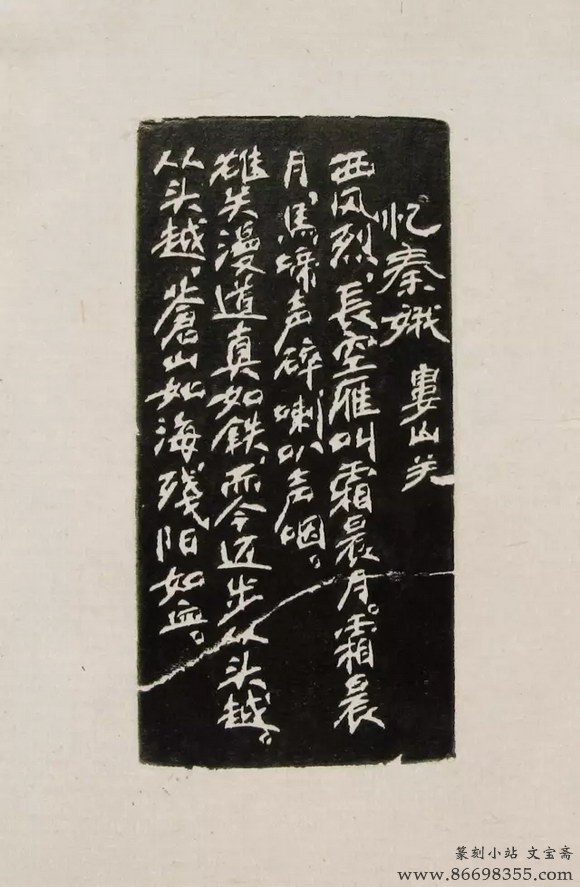 忆秦娥 婁山关
西风烈、長空雁叫霜晨月。霜晨
月、馬蹄声碎喇叭声咽。
雄关漫道真如鉄、而今迈步从头越。
从头越、蒼山如海残阳如血。
篆刻小站 文宝斋
www.86698355.com